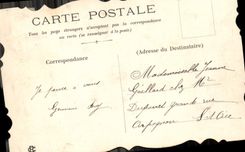 CARTE POSTALE
Tous les pays étrangers n'acceptent pas la correspondance
au recto (se renseigner à la poste)
Correspondance
(Adresse du Destinataire)
Mademoiselle Jeanne
Je pense à vous
Gaillard chez Mr
Germaine
grande rue
Arpajon